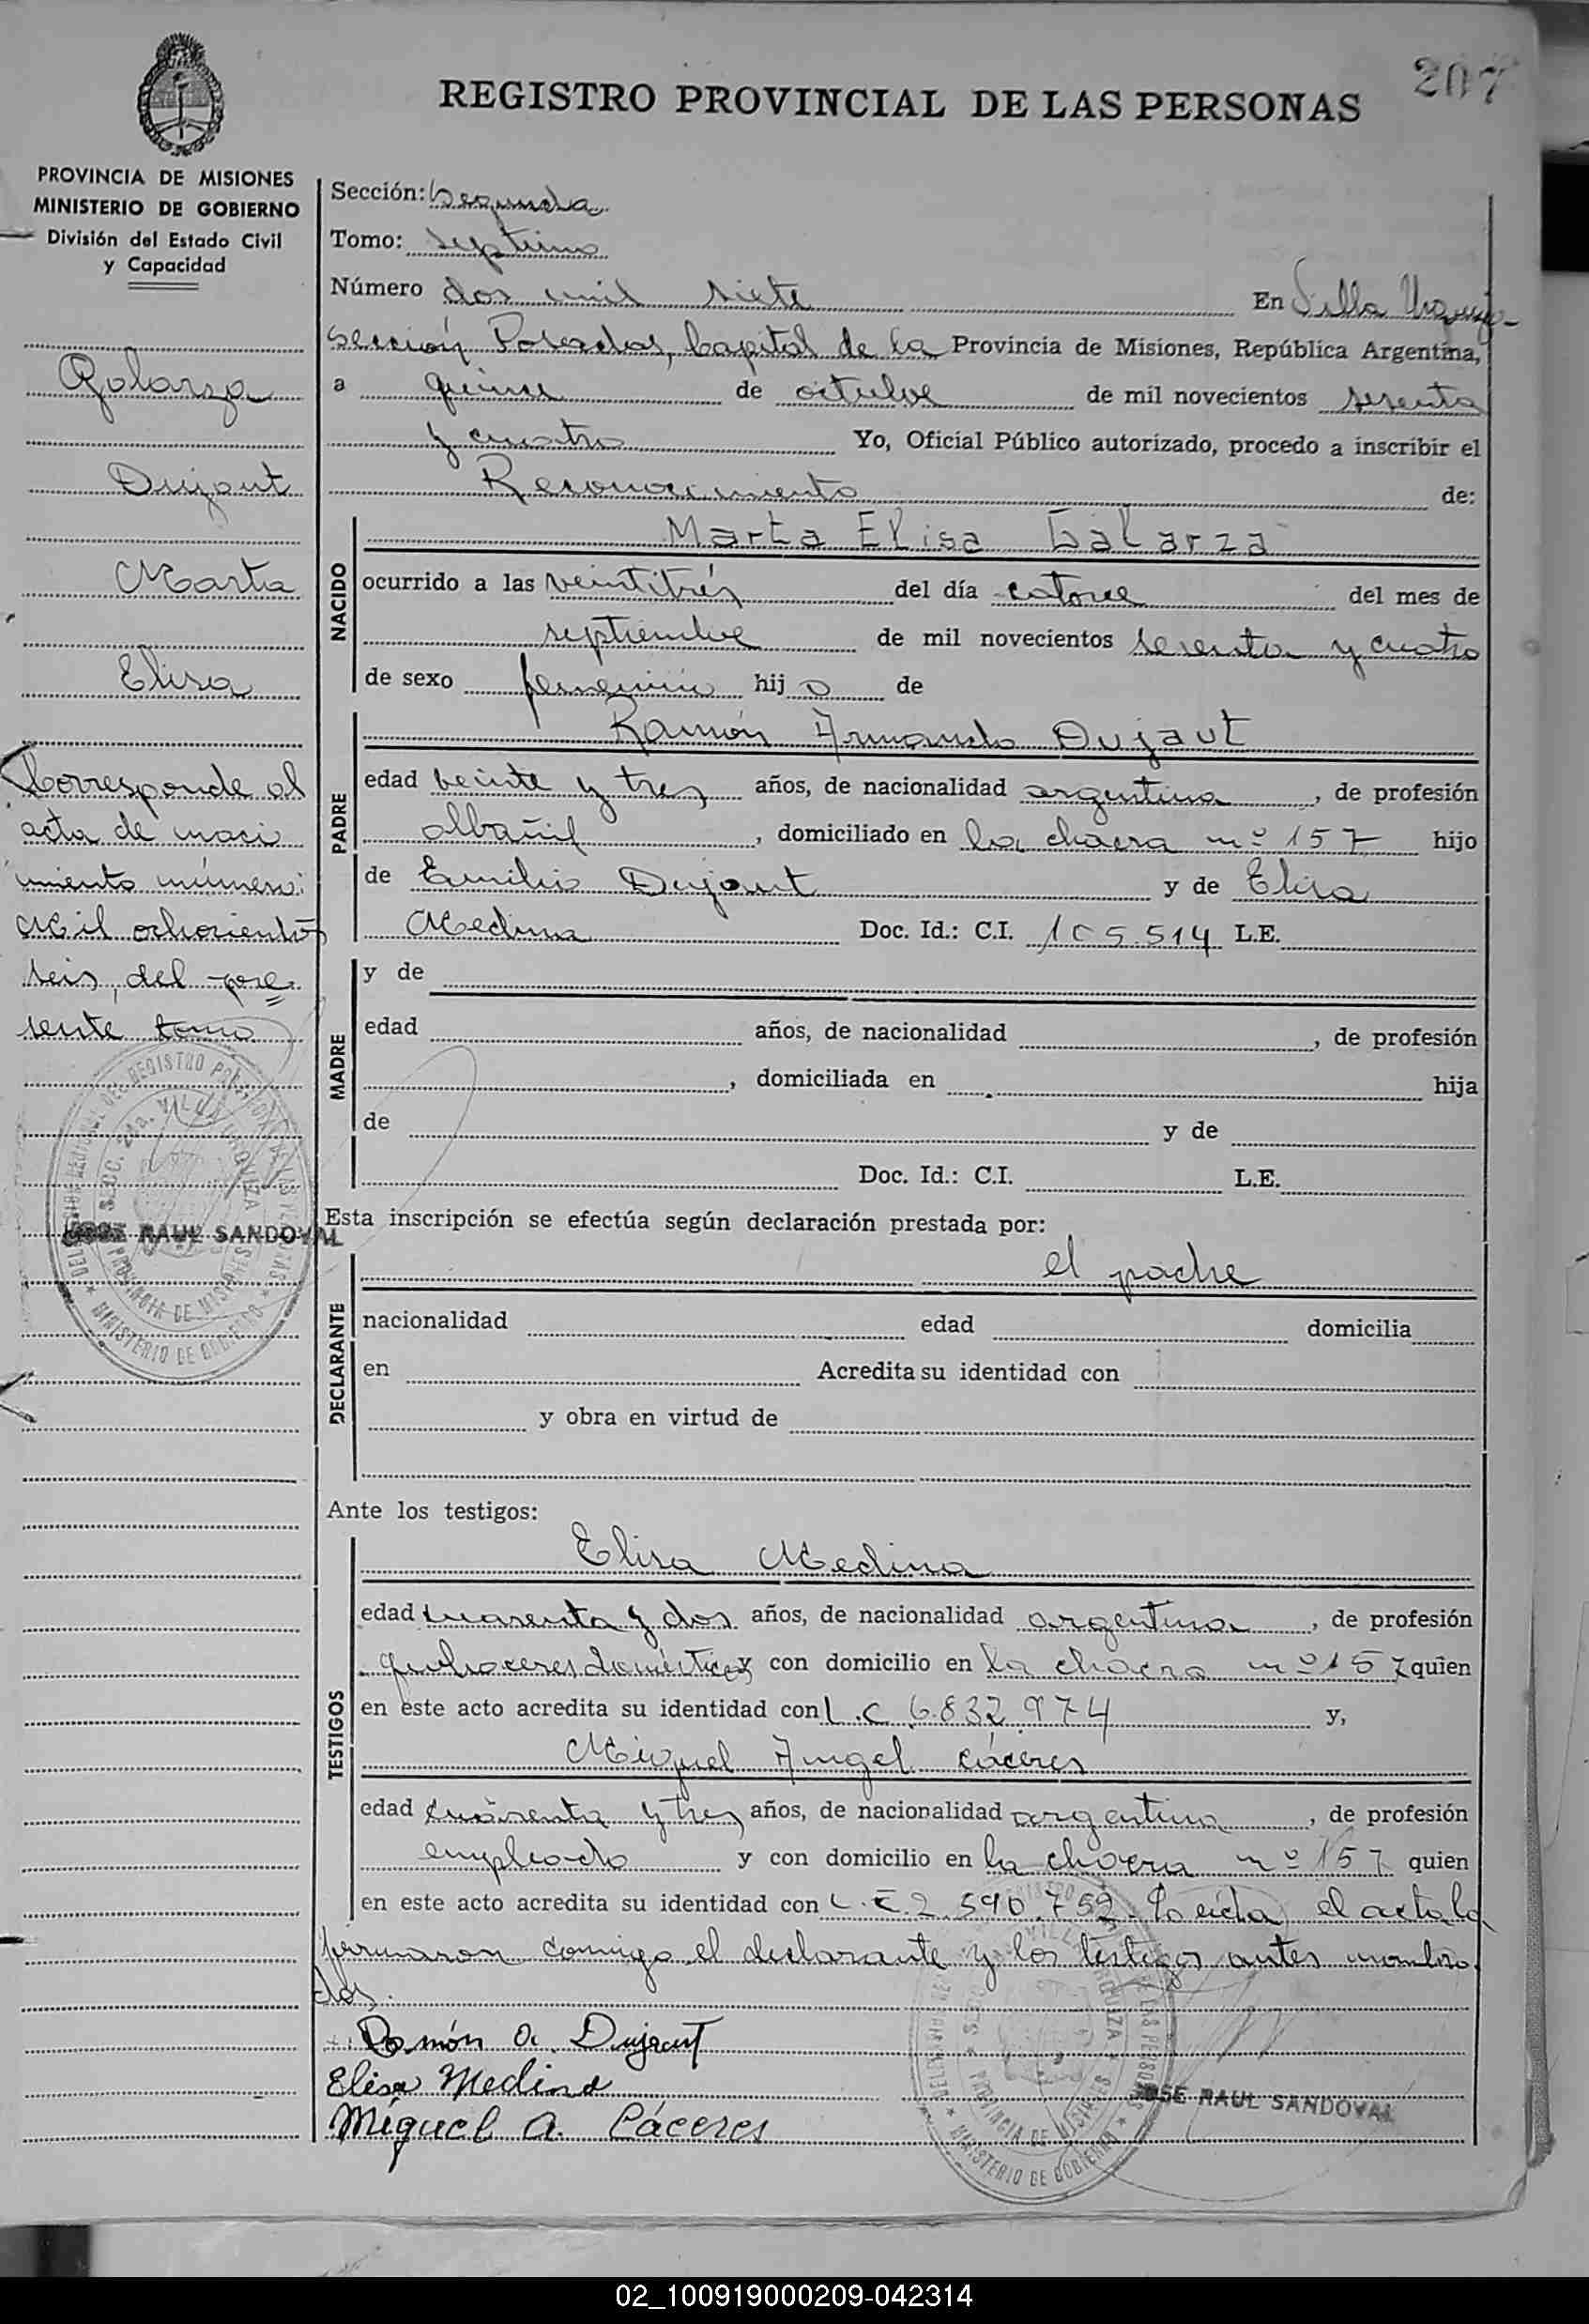 207
REGISTRO PROVINCIAL DE LAS PERSONAS
PROVINCIA DE MISIONES
MINISTERIO DE GOBIERNO
División del Estado Civil
y Capacidad
Galarza
Dujaut
Marta
Elisa
Corresponde al
acta de naci
miento número:
Mil ochocientos
seis, del pre=
sente tomo
JOSE RAUL SANDOVAL
Sección: Segunda
Tomo: Septimo
Número dos mil siete En Villa Urquiza-
Sección Posadas, Capital de la Provincia de Misiones, República Argentina,
a quince de octubre de mil novecientos sesenta
y cuatro Yo, Oficial Público autorizado, procedo a inscribir el
Reconocimiento de:
Marta Elisa Galarza
NACIDO
ocurrido a las veintitrés del día catorce del mes de
septiembre de mil novecientos sesenta y cuatro
de sexo femenino hij a de
Ramón Armando Dujaut
PADRE
edad veinte y tres años, de nacionalidad argentina, de profesión
albañil, domiciliado en la chacra nº 157 hijo
de Emilio Dujaut y de Elisa
Medina Doc. Id.: C.I. 105.514 L.E.
MADRE
y de
edad años, de nacionalidad , de profesión
, domiciliada en hija
de y de
Doc. Id.: C.I. L.E.
Esta inscripción se efectúa según declaración prestada por:
el padre
DECLARANTE
nacionalidad edad domicilia
en Acredita su identidad con
y obra en virtud de
Ante los testigos:
Elisa Medina
TESTIGOS
edad cuarenta y dos años, de nacionalidad argentina, de profesión
quehaceres domésticos y con domicilio en la chacra nº 157 quien
en este acto acredita su identidad con L.C 6.832.974 y,
Miguel Angel Cáceres
edad cuarenta y tres años, de nacionalidad argentina, de profesión
empleado y con domicilio en la chacra nº 157 quien
en este acto acredita su identidad con L.E. 2.590.752. Leída el acta la
firmaron conmigo el declarante y los testigos antes nombra
dos.
Ramón A. Dujaut
Elisa Medina
JOSE RAUL SANDOVAL
Miguel A. Cáceres
02_100919000209-042314